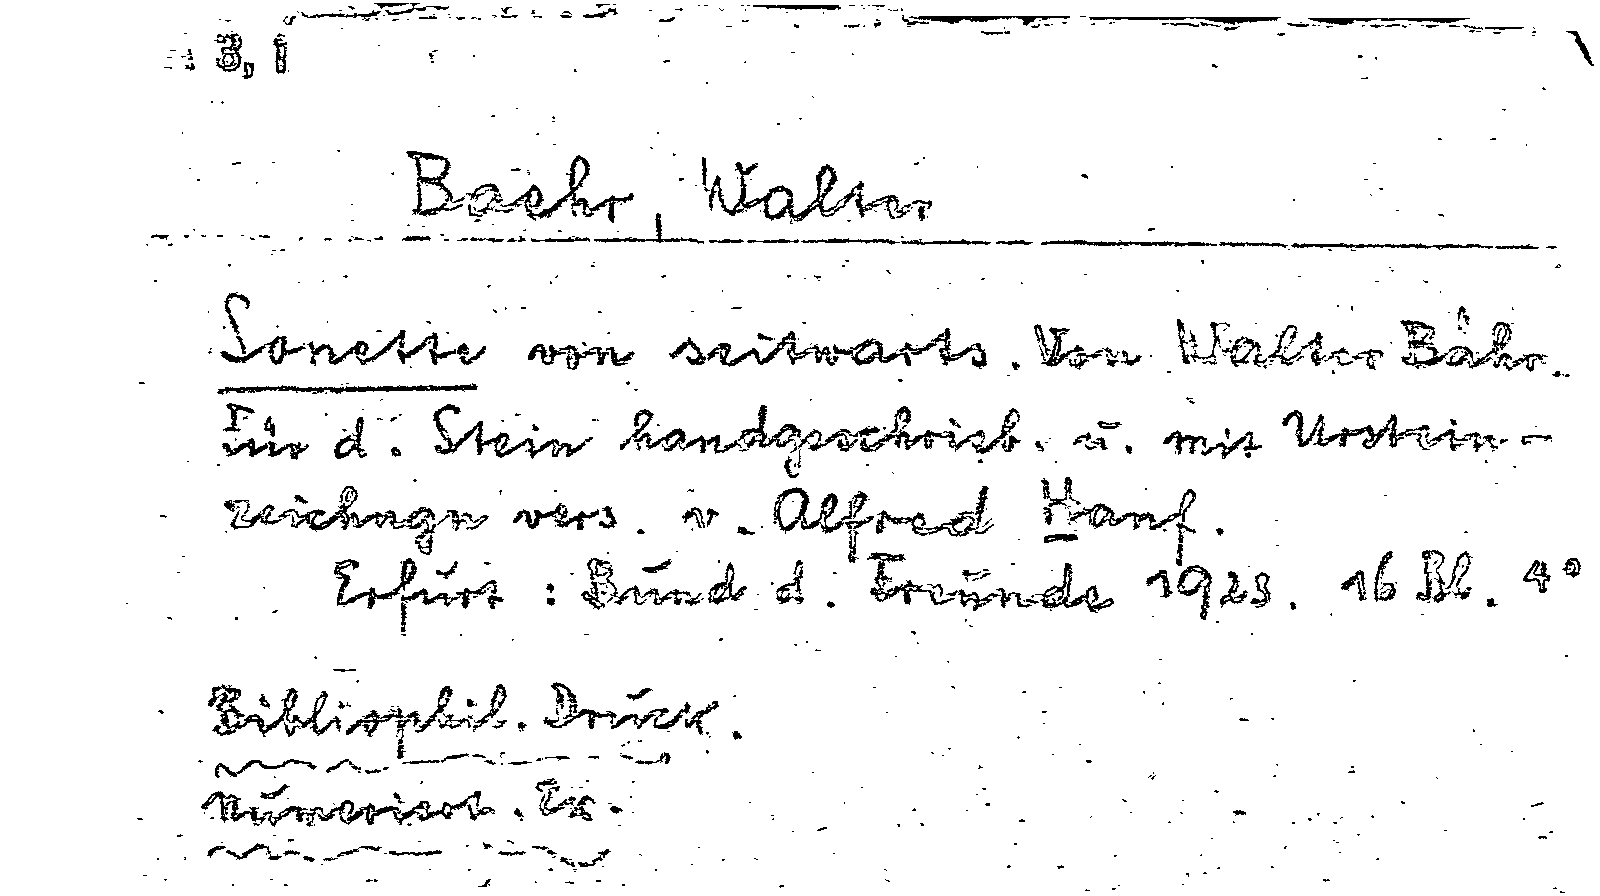 3, 1
Baehr, Walter
Sonette von seitwärts. Von Walter Bähr.
Für d. Stein handgeschrieb. u. mit Urstein-
zeichngn vers. v. Alfred Hanf.
Erfurt: Bund d. Freunde 1923. 16 Bl. 4°
Bibliophil. Druck.
Numeriert. Ex.